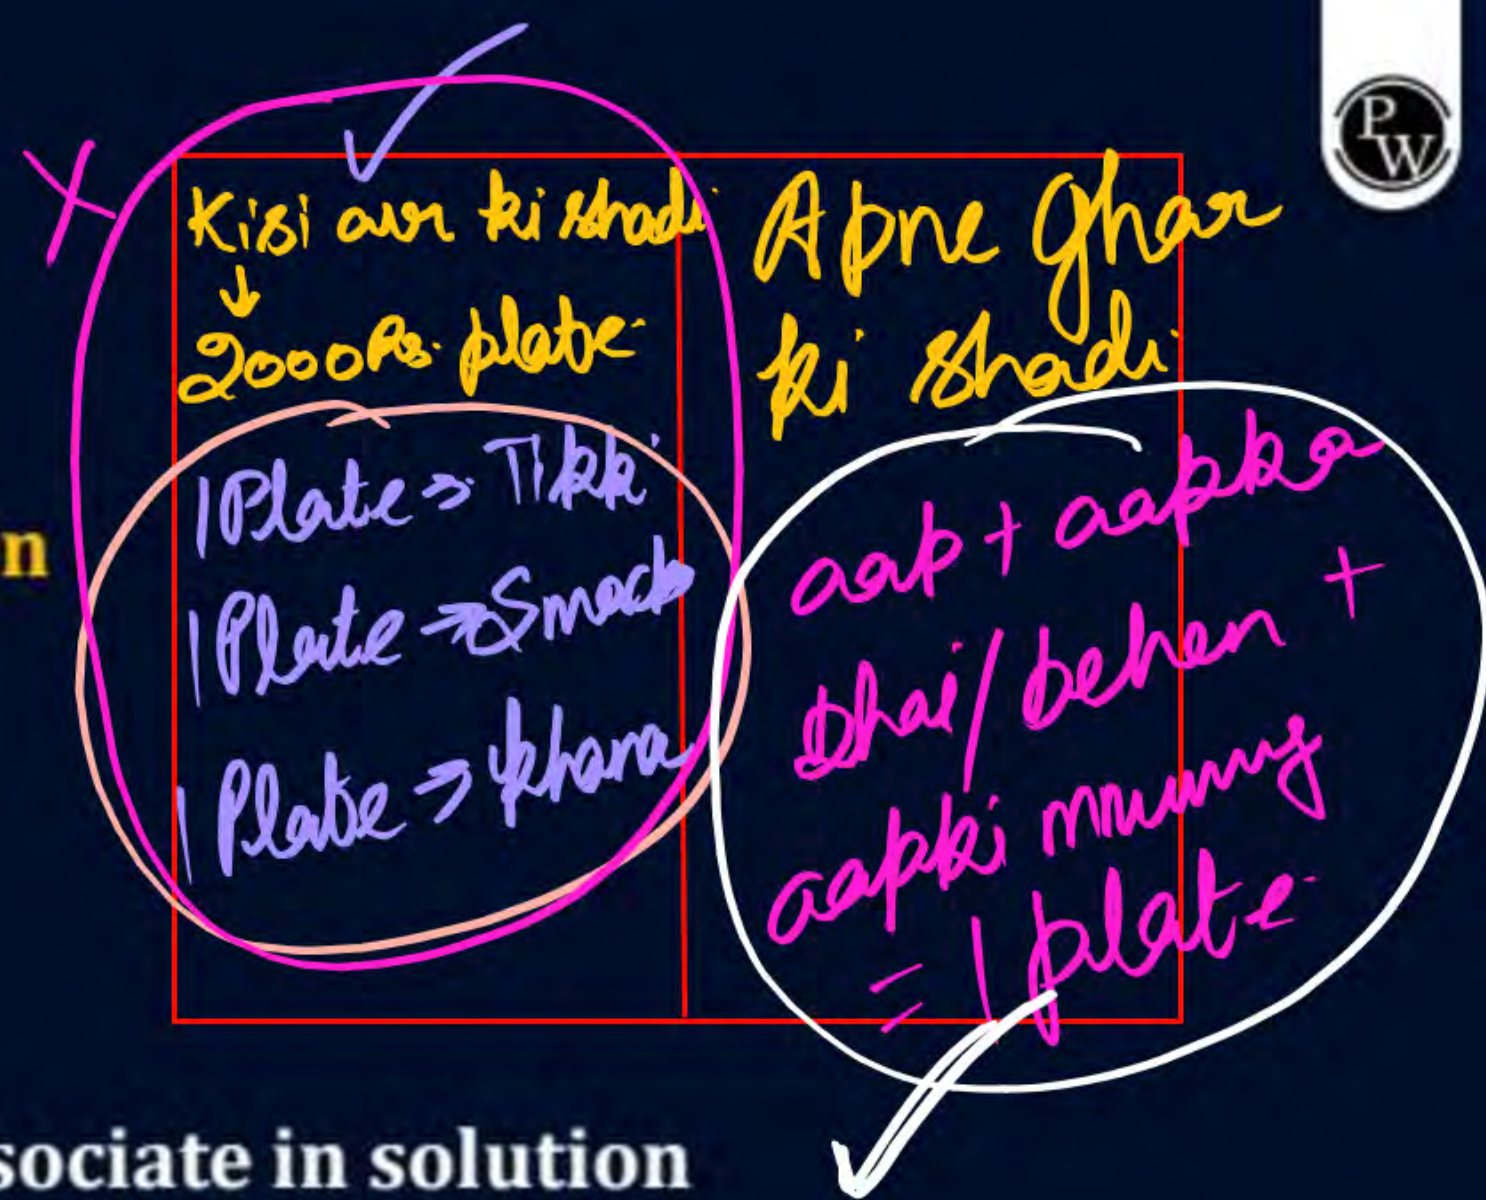 PW
Kisi aur ki shadi
↓
2000Rs. plate
1 Plate → Tikki
1 Plate → Snack
1 Plate → khana
Apne Ghar
ki shadi
aap + aapka
bhai/behen +
aapki mummy
= 1 plate
n
sociate in solution